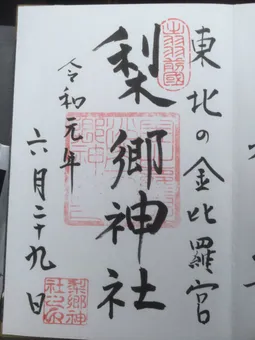 東北の金比羅宮
出羽國
梨郷神社
令和元年
六月二十九日
梨郷神
社之印